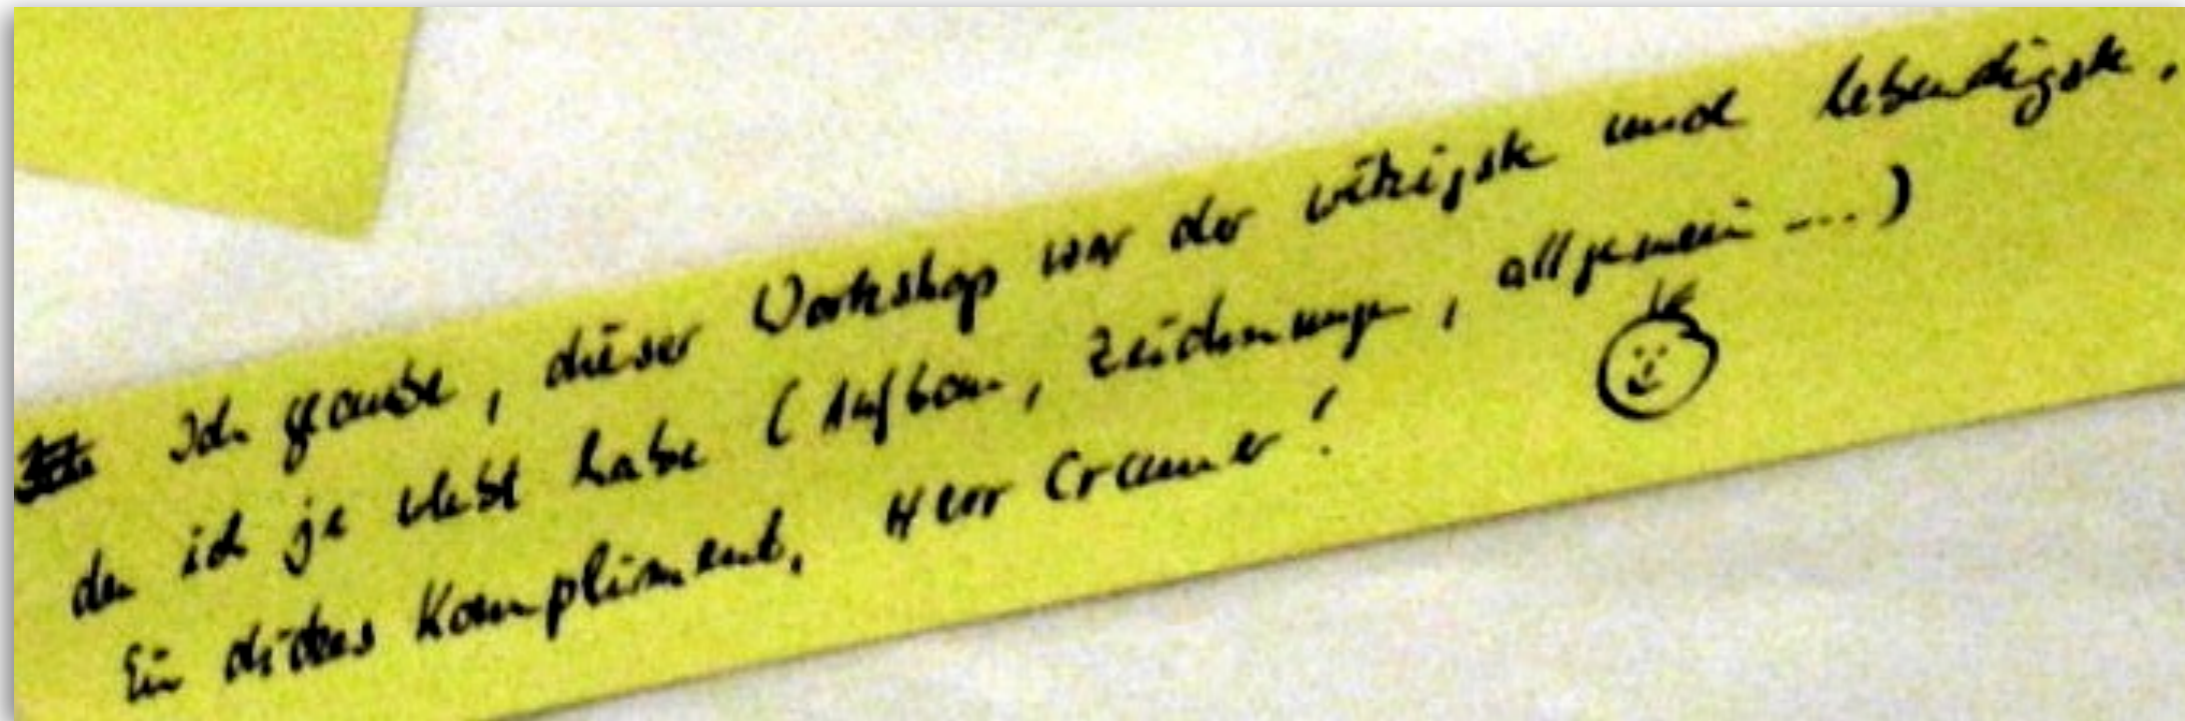 Ich glaube, dieser Workshop war der witzigste und lebendigste,
den ich je erlebt habe (Aufbau, Zeichnungen, allgemein ---)
Ein dickes Kompliment, Herr Cramer!